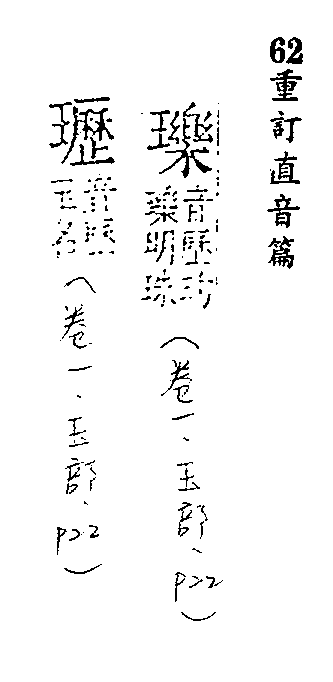 62重訂直音篇
瓅
音歷玓
瓅明珠
(卷一、玉部、P22)
瓑
音歷
玉名
(卷一、玉部、P22)